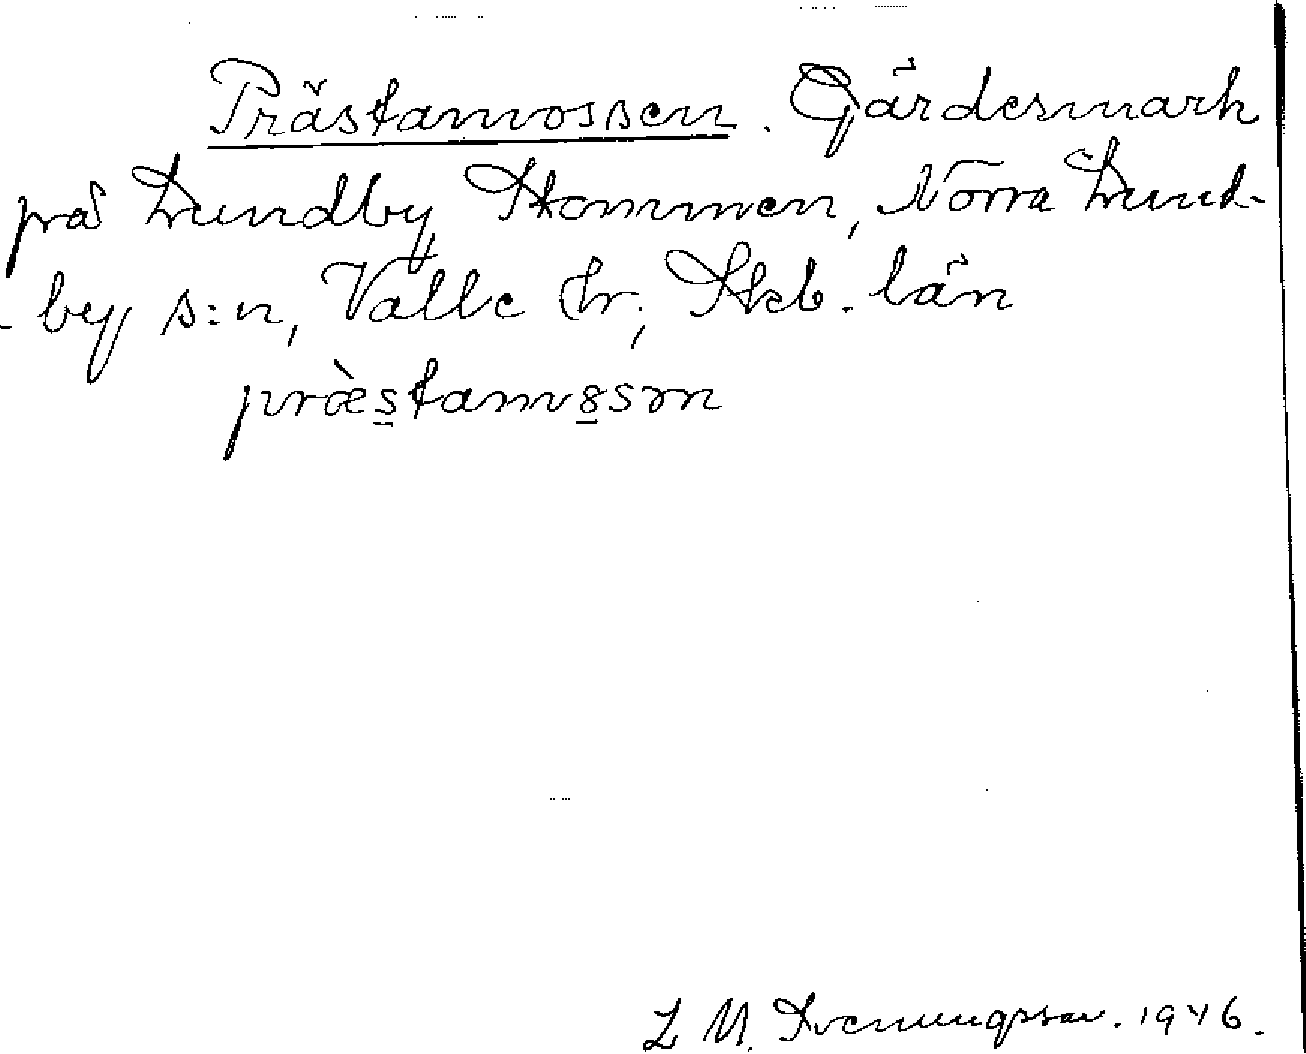 Prästamossen. Gärdesmark
på Lundby Stommen, Norra Lund-
-by s:n, Valle hr; Skb. län
præ̀s̲tamo̲sən
L M. Svenungsson. 1946.